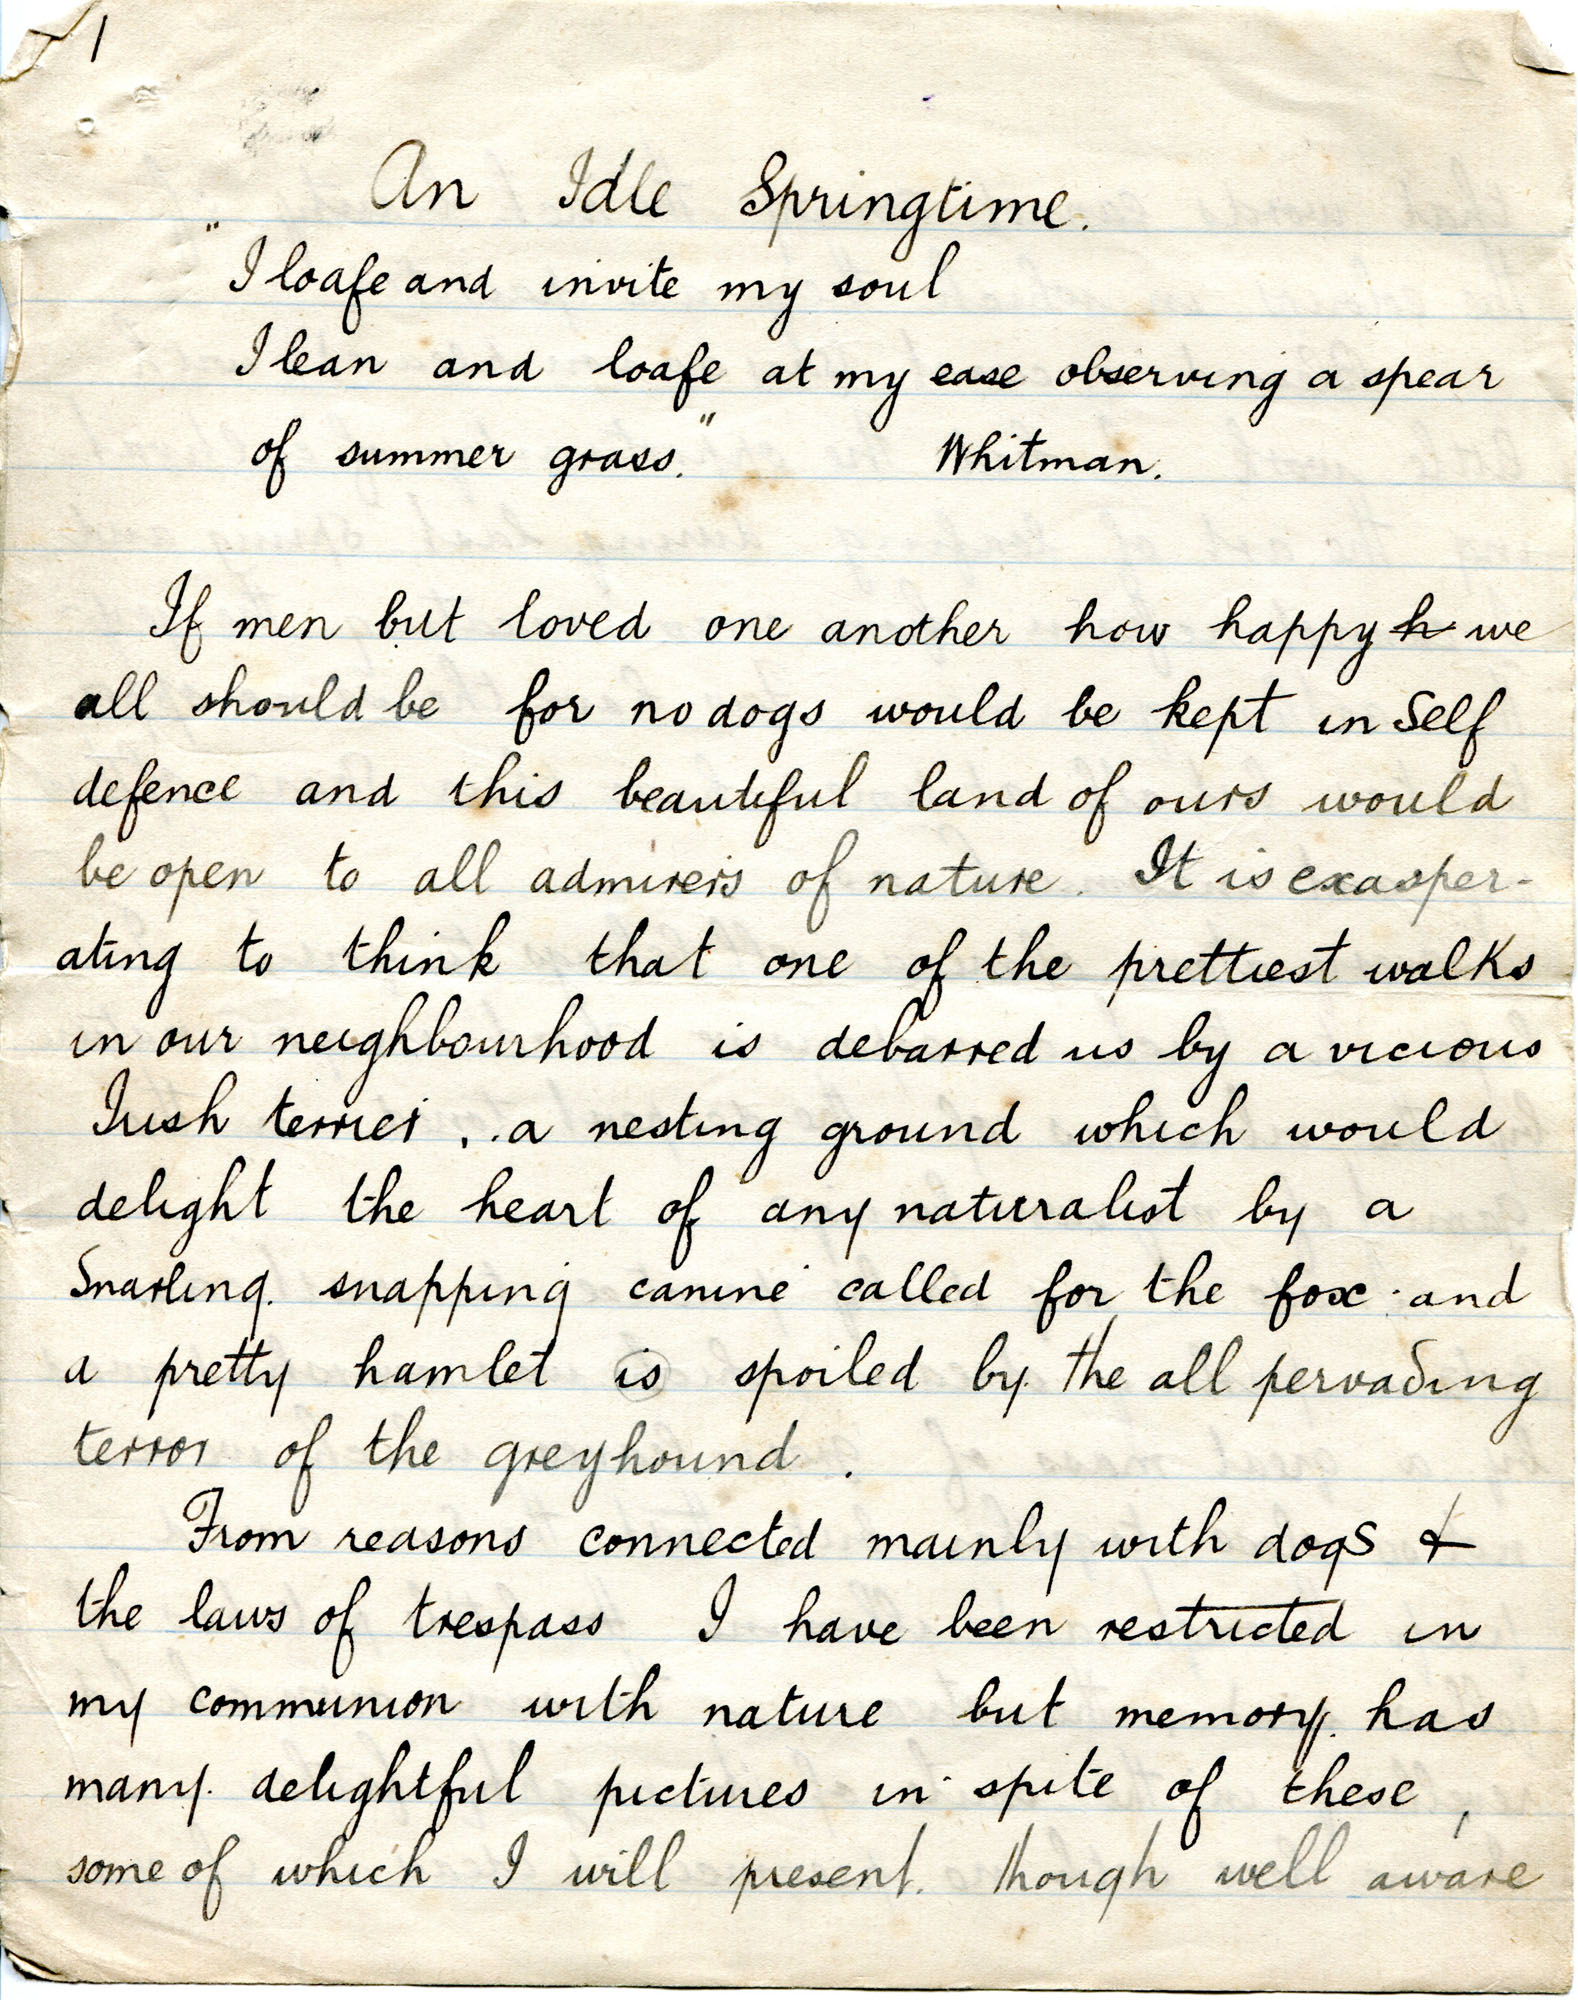 1
An Idle Springtime.
"I loafe and invite my soul
I lean and loafe at my ease observing a spear
of summer grass." Whitman.
If men but loved one another how happy h we
all should be for no dogs would be kept in Self
defence and this beautiful land of ours would
be open to all admirers of nature. It is exasper-
ating to think that one of the prettiest walks
in our neighbourhood is debarred us by a vicious
Irish terrier, . a nesting ground which would
delight the heart of any naturalist by a
Snarling. snapping canine called for the fox and
a pretty hamlet is spoiled by the all pervading
terror of the greyhound.
From reasons connected mainly with dogs &
the laws of trespass I have been restricted in
my communion with nature but memory has
many delightful pictures in spite of these,
some of which I will present. though well aware